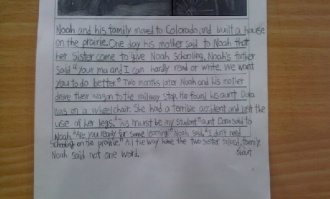 Noah and his family moved to Colorado, and built a house
on the prairie. One day his mother said to Noah that
her Sister came to give Noah Schooling. Noah's father
said "Your ma and I can hardly read or write. We want
you to do better." Two months later Noah and his mother
drove their wagon to the railway stop. He found his aunt Dora
was on a wheelchair. She had a terrible accident and lost the
use of her legs. "This must be my student" aunt Dora said to
Noah, "Are you ready for some learning" Noah said, "I don't need
schooling on the prairie." All the way home the two sister talked,
Noah said not one word.